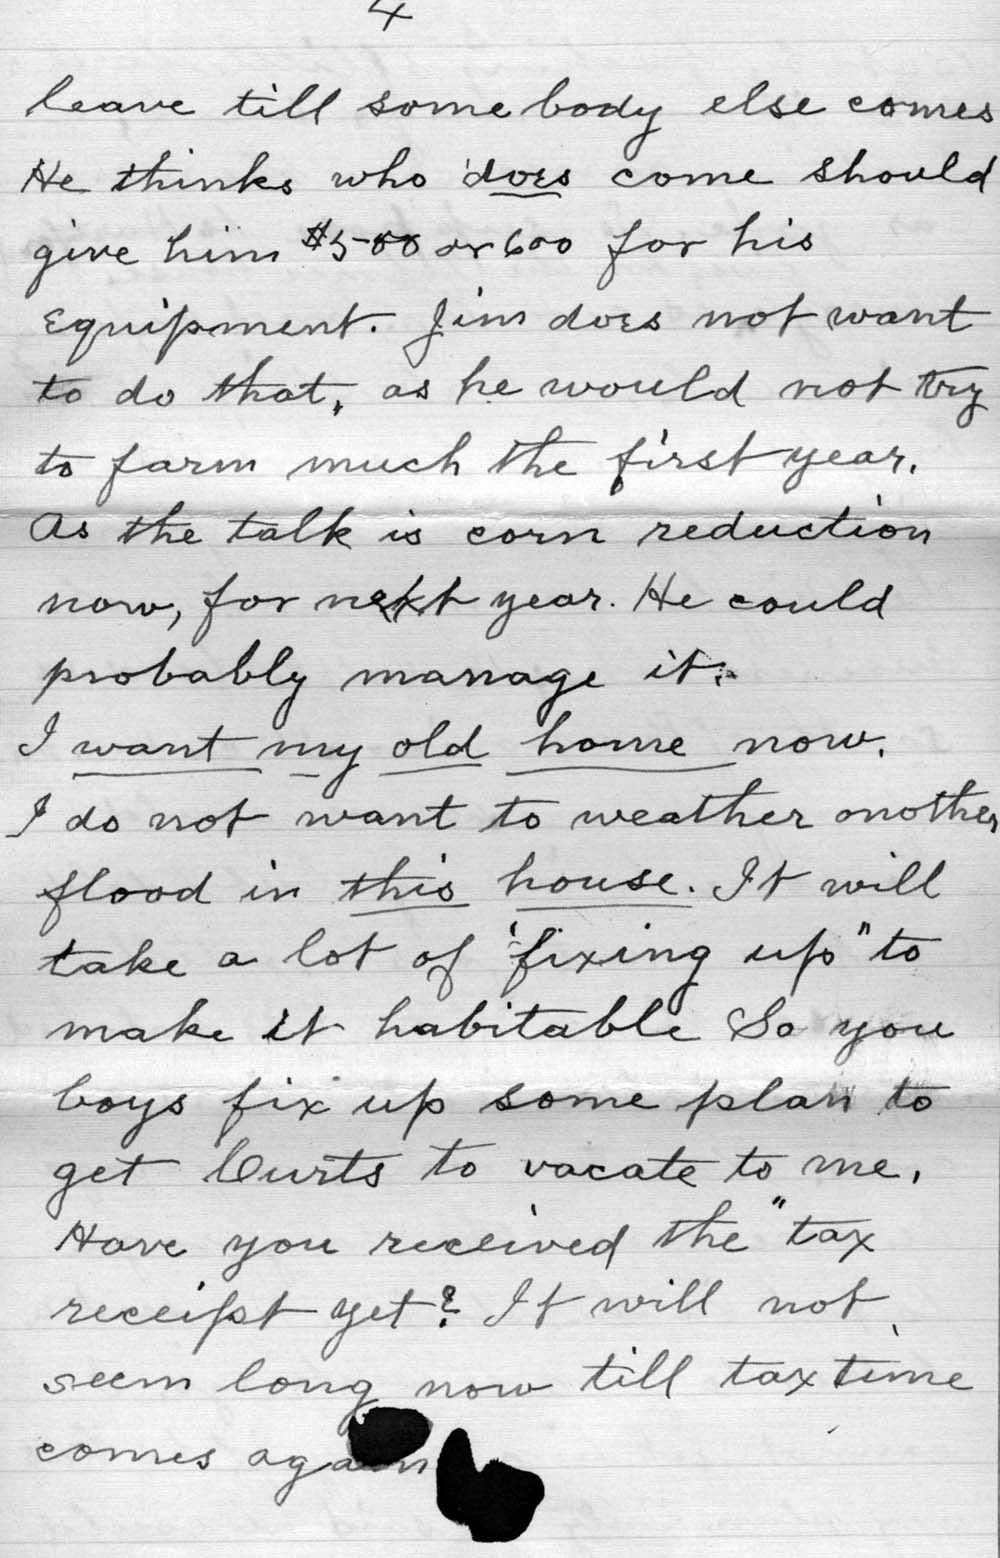 4
leave till some body else comes
He thinks who does come should
give him $500 or 600 for his
Equipment. Jim does not want
to do that, as he would not try
to farm much the first year.
As the talk is corn reduction
now, for next year. He could
probably manage it.
I want my old home now.
I do not want to weather another
flood in this house. It will
take a lot of "fixing up" to
make it habitable So you
boys fix up some plan to
get Curts to vacate to me.
Have you received the "tax
receipt yet? It will not
seem long now till tax time
comes again